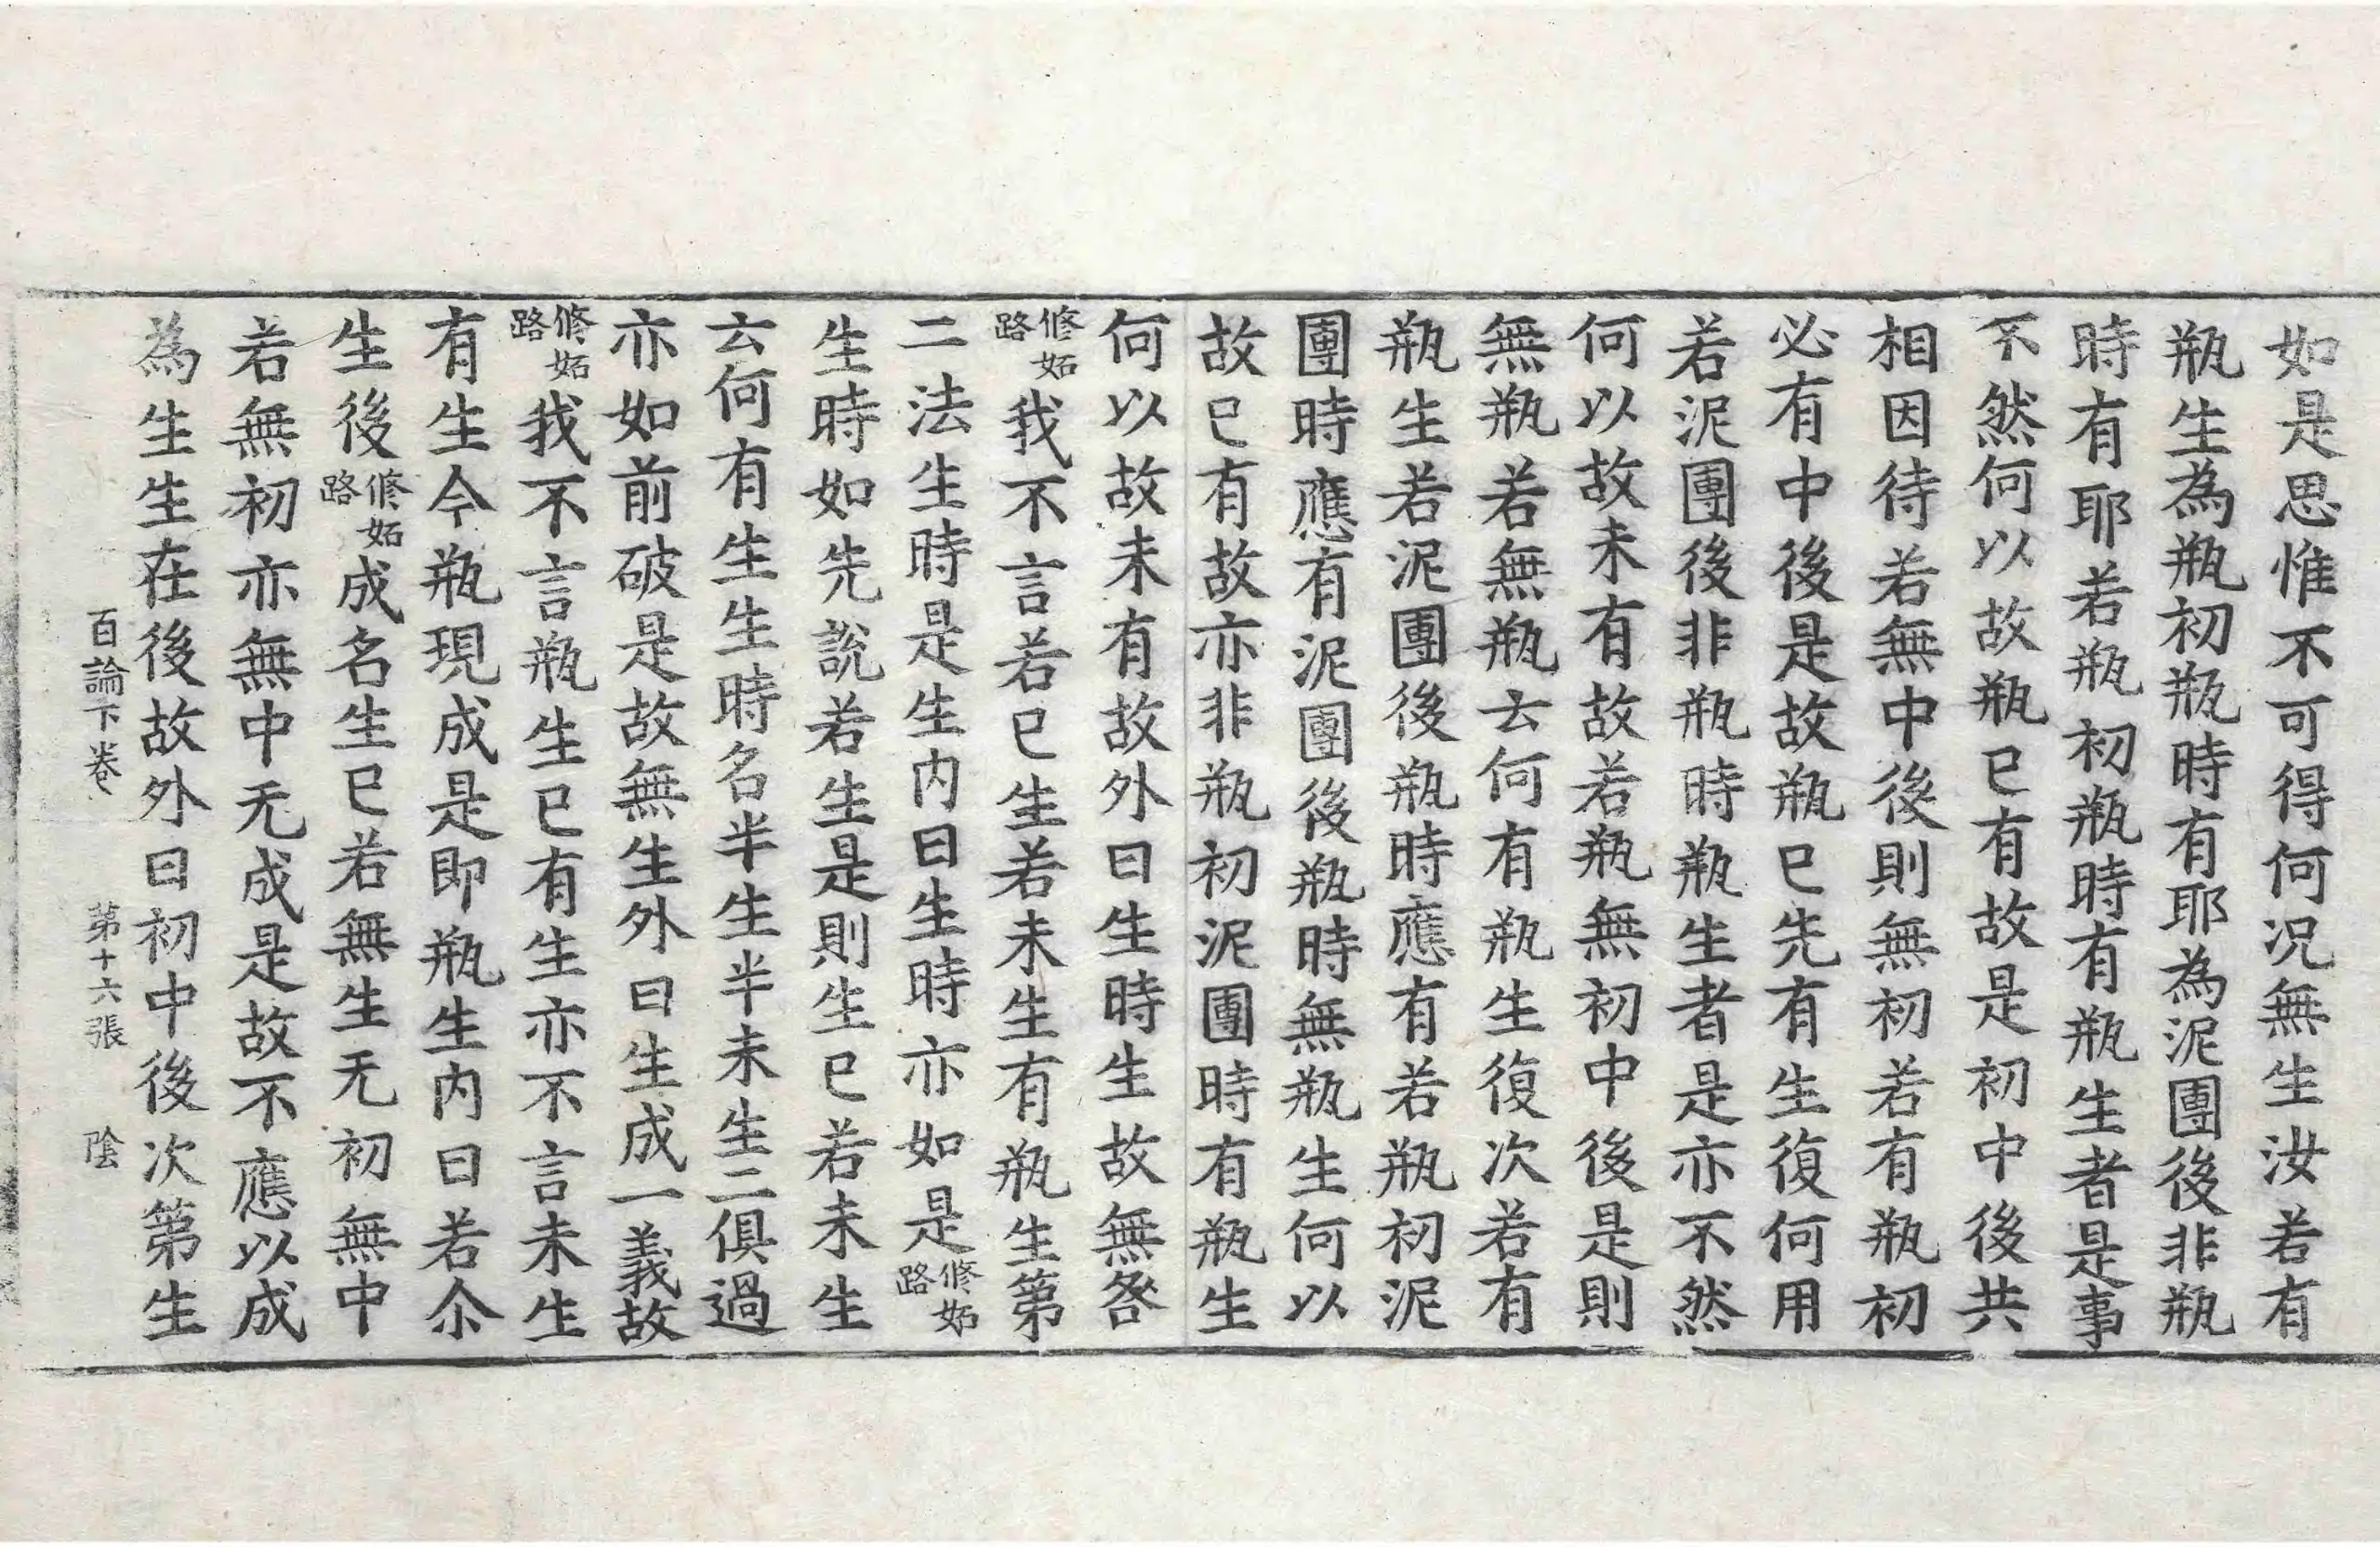 如是思惟不可得何况無生汝若有
瓶生為瓶初瓶時有耶為泥團後非瓶
時有耶若瓶初瓶時有瓶生者是事
不然何以故瓶已有故是初中後共
相因待若無中後則無初若有瓶初
必有中後是故瓶已先有生復何用
若泥團後非瓶時瓶生者是亦不然
何以故未有故若瓶無初中後是則
無瓶若無瓶云何有瓶生復次若有
瓶生若泥團後瓶時應有若瓶初泥
團時應有泥團後瓶時無瓶生何以
故已有故亦非瓶初泥團時有瓶生
何以故未有故外曰生時生故無咎
修妬路我不言若已生若未生有瓶生第
二法生時是生内曰生時亦如是修妬路
生時如先說若生是則生已若未生
云何有生生時名半生半未生二俱過
亦如前破是故無生外曰生成一義故
修妬路我不言瓶生已有生亦不言未生
有生今瓶現成是即瓶生内曰若尒
生後修妬路成名生已若無生无初無中
若無初亦無中无成是故不應以成
為生生在後故外曰初中後次第生
百論下卷 第十六張 隂